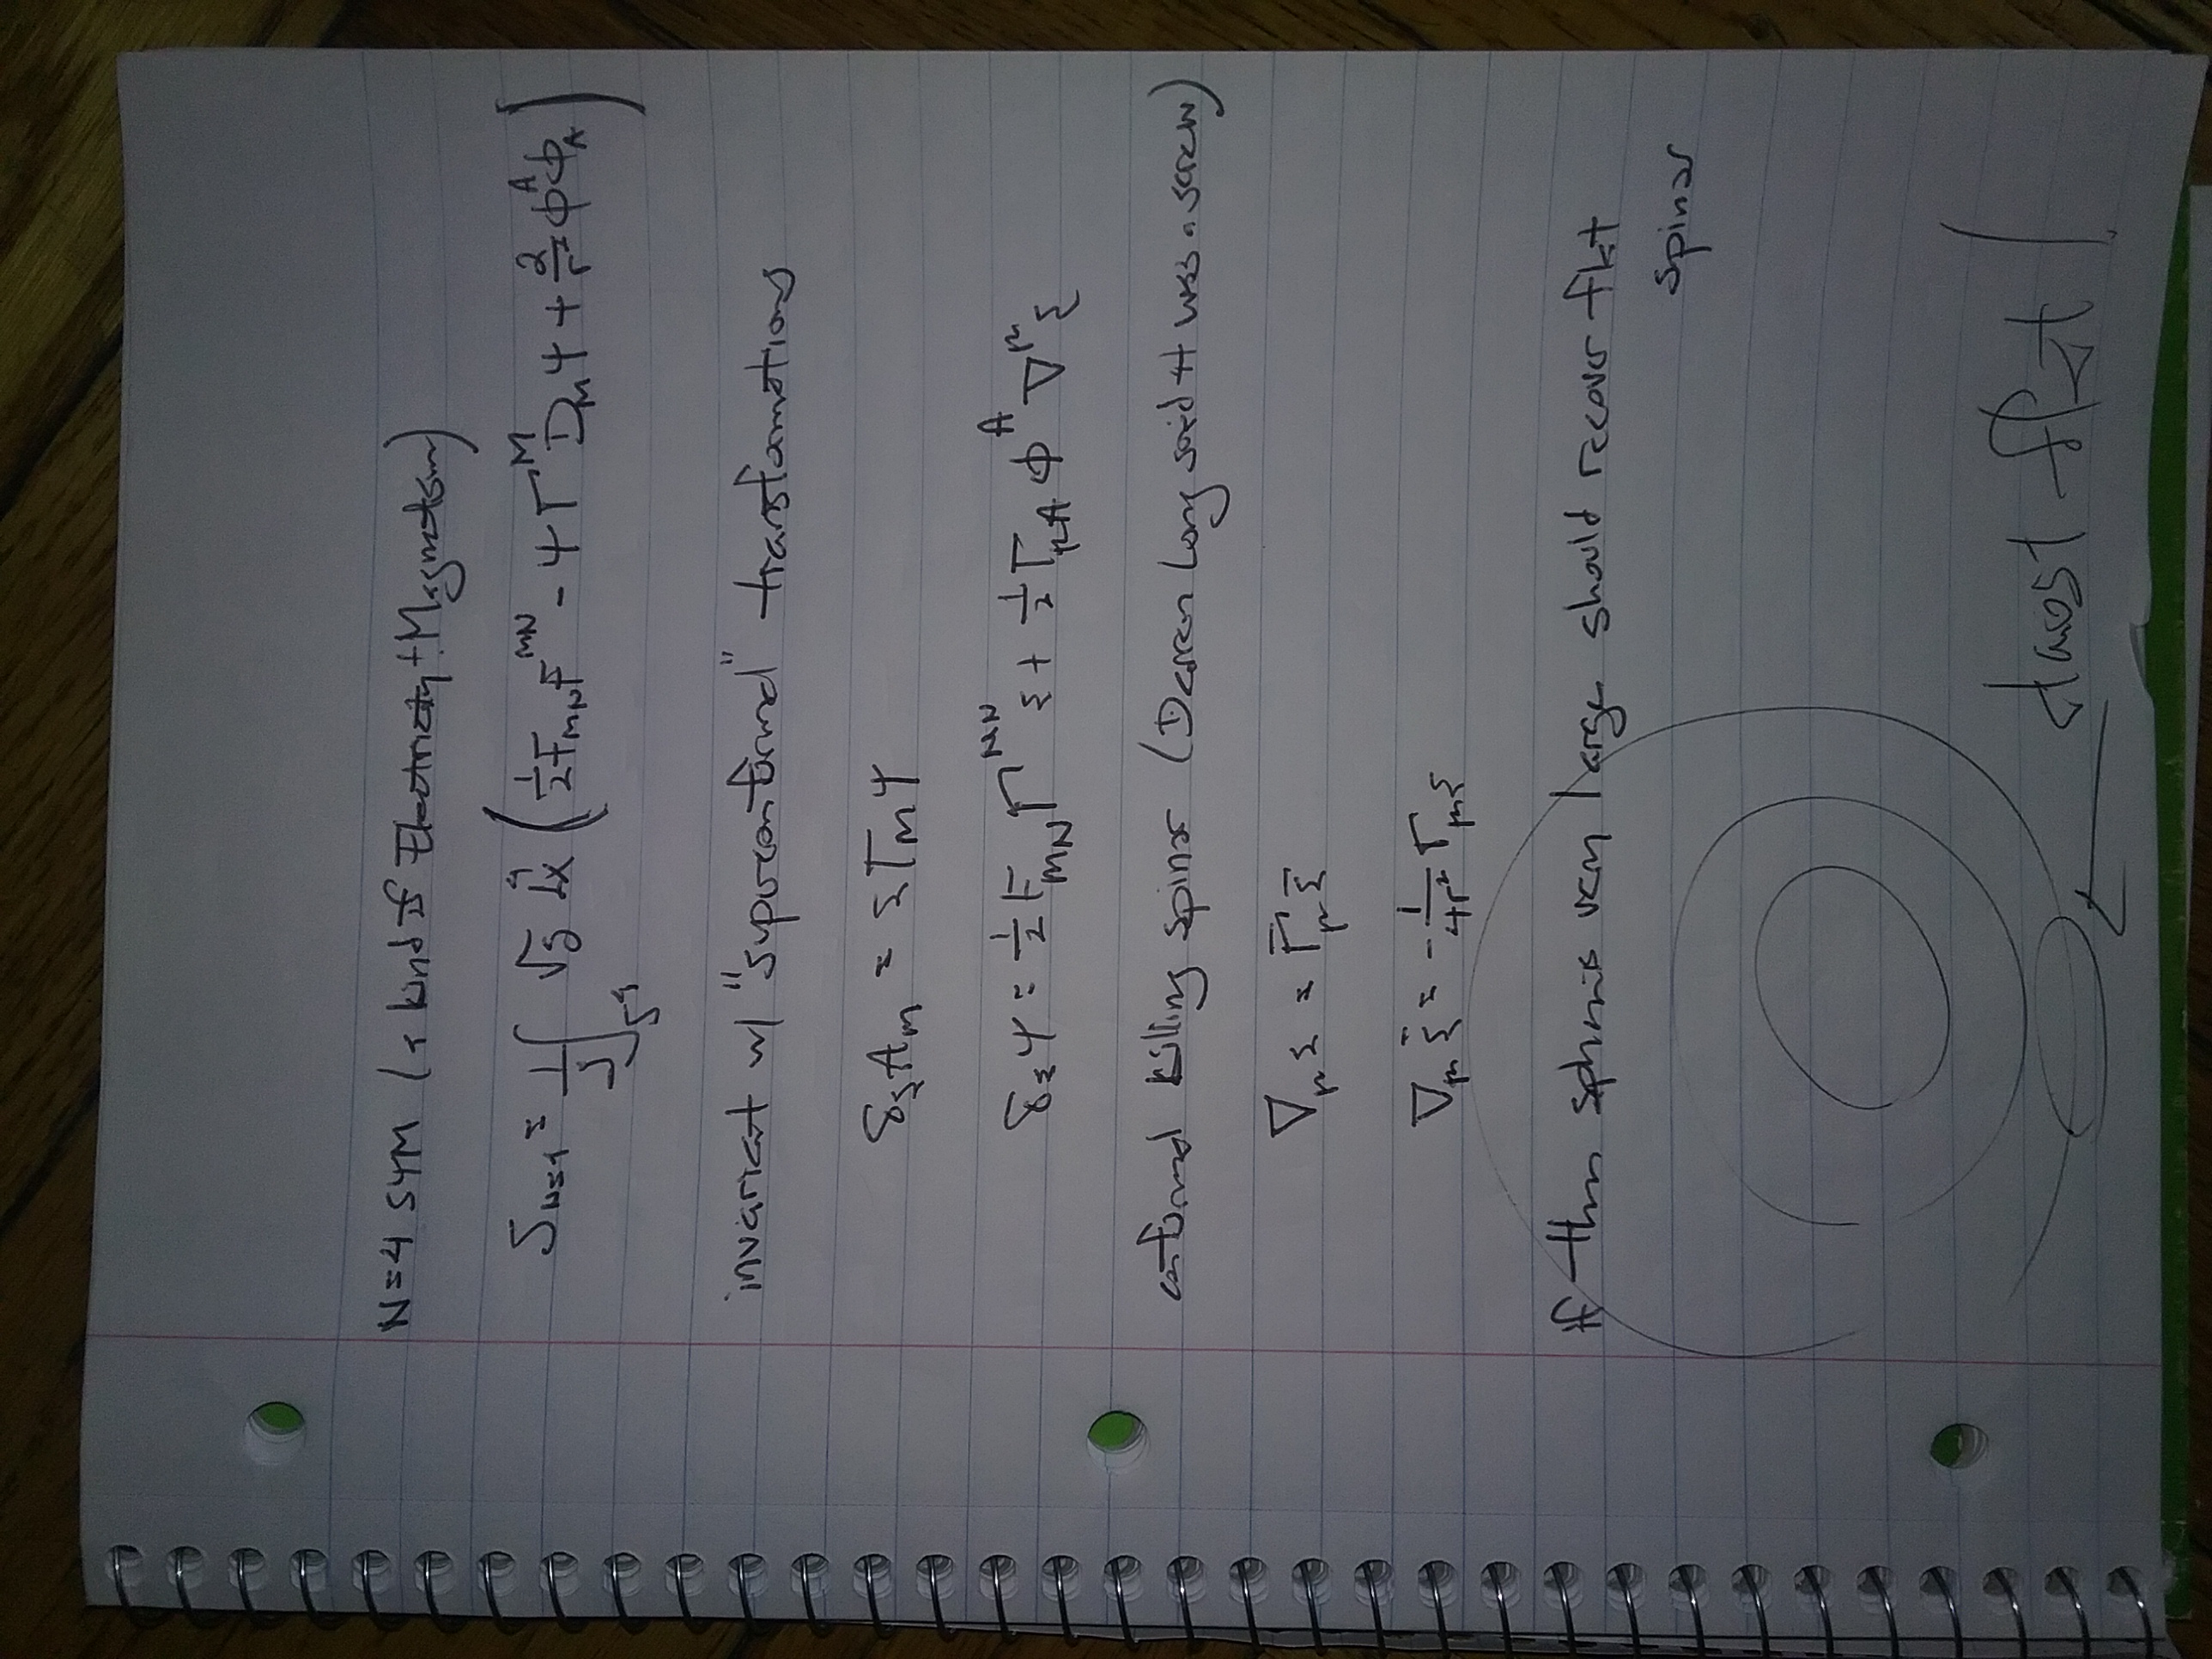 N=4 SYM (a kind of Electricity + Magnetism)
S_{N=4} = 1/J ∫_{S^4} √g d^4x ( 1/2 F_{MN} F^{MN} - Ψ Γ^M D_M Ψ + 2/r^2 Φ^A Φ_A )
invariant w/ "superconformal" transformations
δ_ξ A_M = ξ Γ_M Ψ
δ_ξ Ψ = 1/2 F_{MN} Γ^{MN} ξ + 1/2 Γ_{μA} Φ^A ∇^μ ξ
conformal killing spinor (Deacon Long said it was a screw)
∇_μ ξ = Γ̃_μ ξ̃
∇_μ ξ̃ = - 1/4r^2 Γ_μ ξ
If the sphere is very large should recover flat
spinor
almost flat!